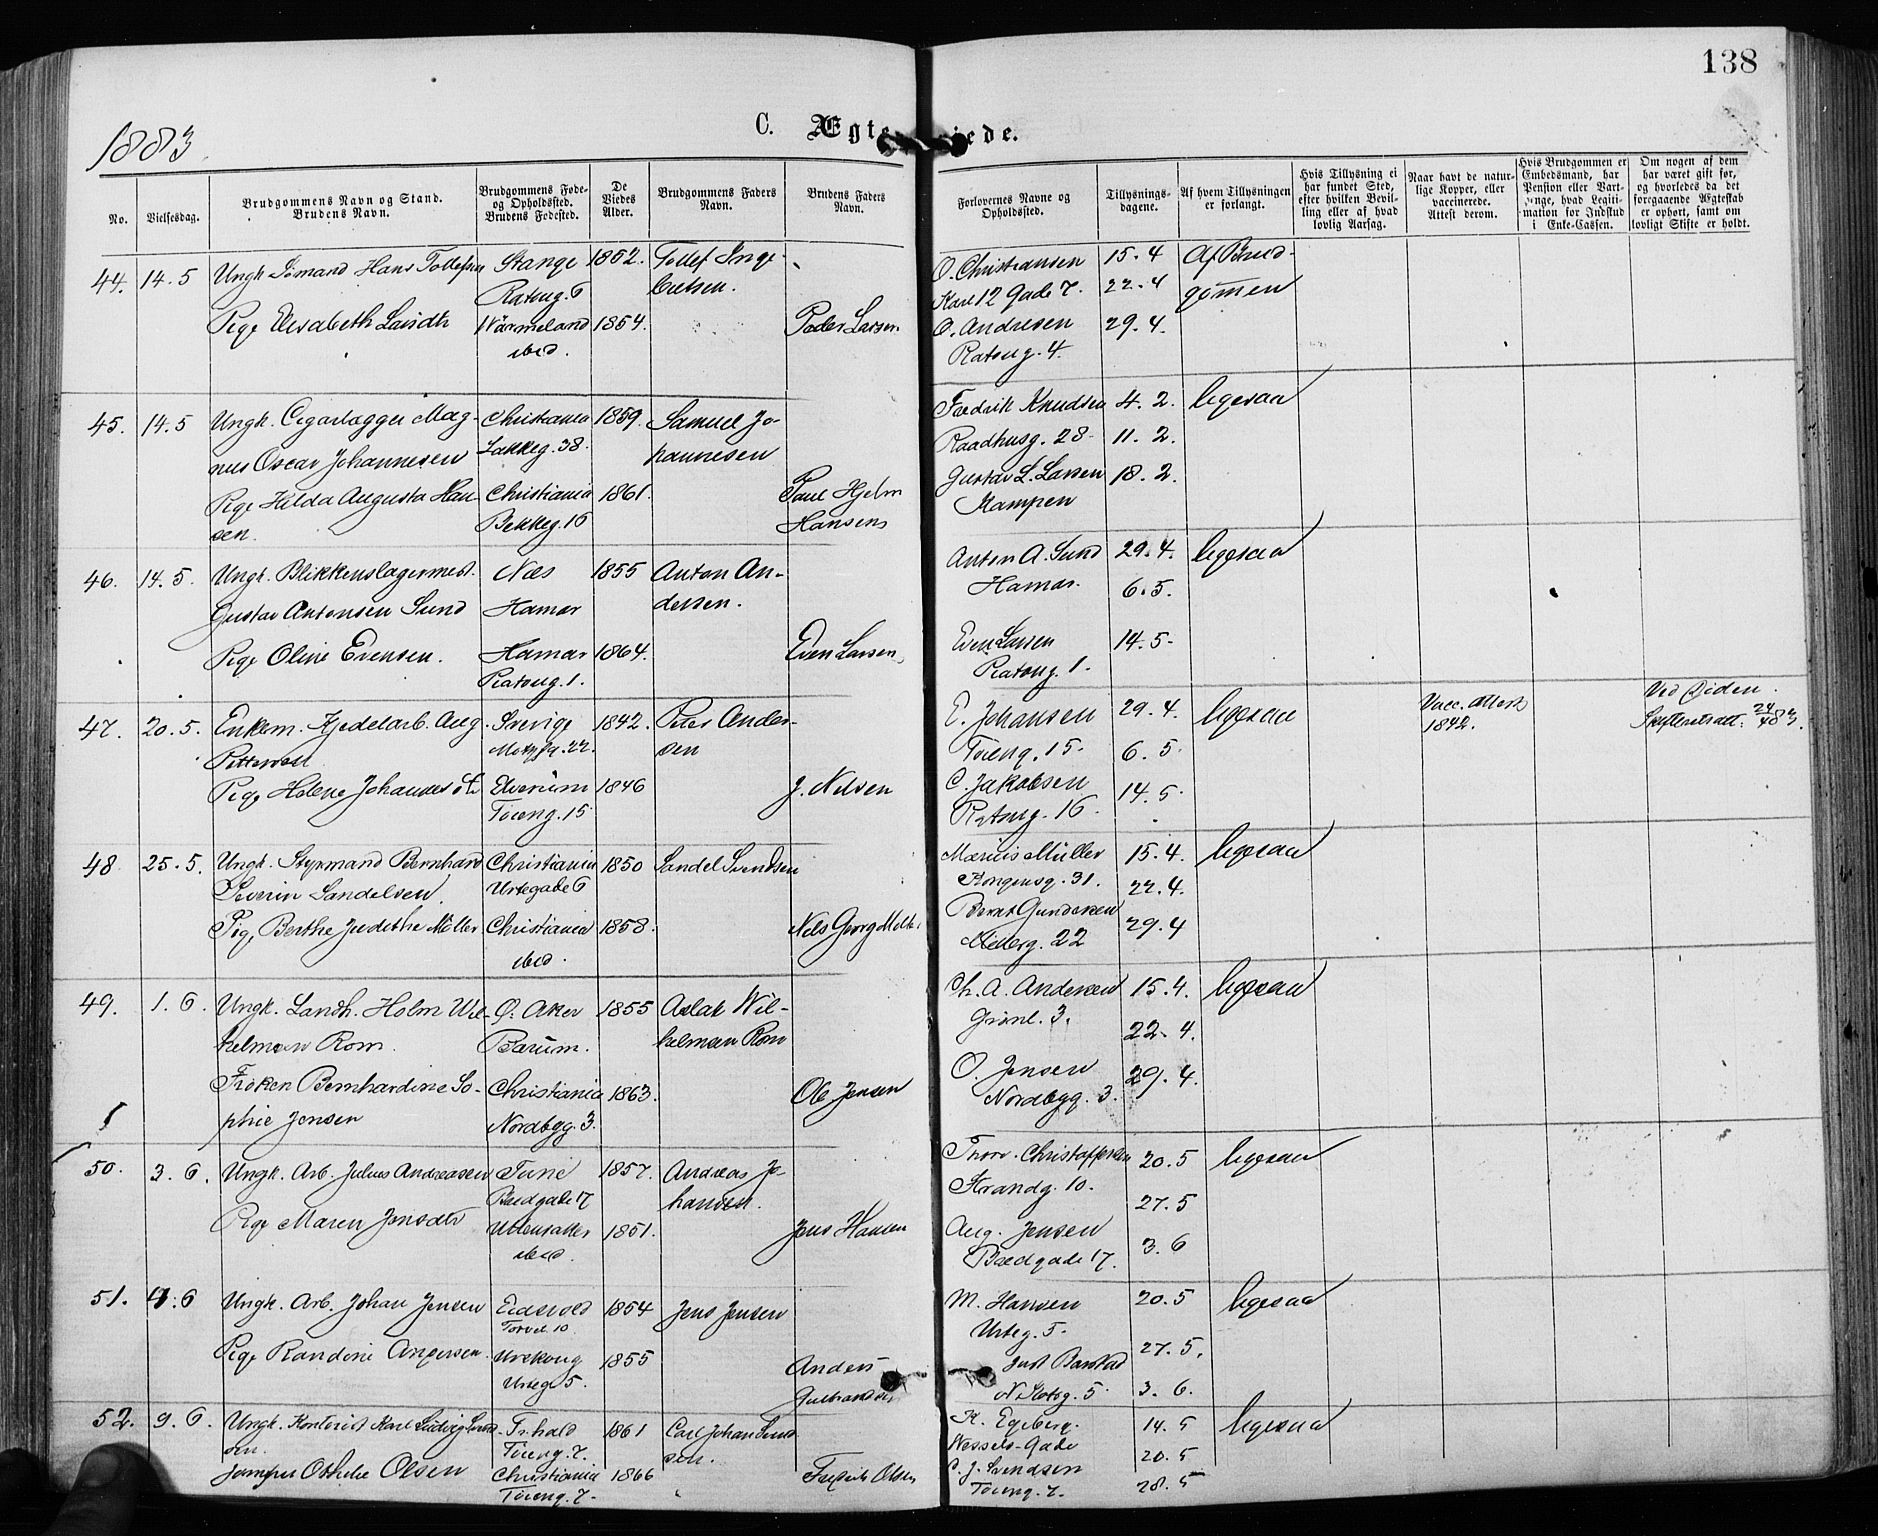 138
1883
C. Ægte iede.
No.
Vielsesdag.
Brudgommens Navn og Stand.
Brudens Navn.
Brudgommens Føde-
og Opholdssted.
Brudens Fødested.
De
Viedes
Alder.
Brudgommens Faders
Navn.
Brudens Faders
Navn.
Forlovernes Navne og
Opholdssted.
Tillysnings-
dagene.
Af hvem Tillysningen
er forlangt.
Hvis Tillysning ei
har fundet Sted,
efter hvilken Bevil-
ling eller af hvad
lovlig Aarsag.
Naar havt de natur-
lige Kopper, eller
vaccinerede.
Attest derom.
Hvis Brudgommen er
Embedsmand, har
Pension eller Vart-
penge, hvad Legiti-
mation for Indskud
i Enke-Cassen.
Om nogen af dem
har været gift før,
og hvorledes da det
foregaaende Ægteskab
er ophørt, samt om
lovligt Skifte er holdt.
44. 14.5 Ungk. Sømand Hans Tollefsen Stange 1852. Tollef Inge- O. Christiansen 15.4 Af Brud-
Ratoug. 6 bretsen. Karl 12 Gade 7. 22.4 gommen
Pige Elisabeth Larsdtr Värmeland 1854. Peder Larsen O. Andresen 29.4.
ibid. Ratoug. 4.
45. 14.5 Ungk. Cigarlægger Mag- Christiania 1859. Samuel Jo- Fredrik Knudsen 4.2. ligesaa
nus Oscar Johannesen Lakkeg. 38. hannesen Raadhusg. 28 11.2.
Pige Hilda Augusta Han- Christiania 1861. Paul Hjelm Gustav L. Larsen 18.2.
sen. Bekkeg. 16 Hansen Kampen
46. 14.5. Ungk. Blikkenslagermest. Næs 1855 Anton An- Anton A. Sund 29.4. ligesaa
Gustav Antonsen Sund Hamar dersen. Hamar. 6.5.
Pige Oline Evensen. Hamar 1864. Even Larsen Even Larsen 14.5.
Ratoug. 1. Ratoug. 1.
47. 20.5. Enkem. Kjedelarb. Aug. Sverige 1842. Peter Ander- E. Johansen 29.4. ligesaa Vacc. Attest
Pettersen sen Tøieng. 15. 6.5. 1842.
Pige Helene Johannesdtr Elverum 1846 J. Nilsen C. Jakobsen 14.5.
Tøieng. 15 Ratoug. 16.
48 25.5. Ungk. Styrmand Bernhard Christiania 1850 Sandel Svendsen Marius Müller 15.4. ligesaa
Severin Sandelsen. Urtegade 6 Kongensg. 31. 22.4.
Pige Berthe Judithe Möller Christiania 1858. Nils Georg Bernt Gundersen 29.4
ibid. 22
49. 1.6. Ungk. Landh. Holm Wil- Ø. Aker 1855 Aslak Wil- Ch. A. Andersen 15.4. ligesaa
helmsen Rom. Bærum. helmsen Rom Grønl. 3. 22.4.
Frøken Bernhardine So- Christiania 1863. Ole Jensen O. Jensen 29.4.
phie Jensen Nordbygg. 3. Nordbygg. 3.
50. 3.6. Ungk. Arb. Julius Andreassen Tune 1857. Andreas Jo- Thorv. Christoffersen 20.5 ligesaa
Bredgade 17 hansen. Strandg. 10. 27.5
Pige Maren Jensdtr Ullensaker 1851. Jens Hansen Aug. Jensen 3.6
ibid. Bredgade 17.
51. 4.6 Ungk. Arb. Johan Jensen Eidsvold 1854 Jens Jensen M. Hansen 20.5 ligesaa
Torvet. 10 Urteg. 5.
Pige Randine Andersen Urskoug 1855 Anders Just 27.5.
Urteg. 5. Gulbrandsen N. Slotsg. 5. 3.6.
52. 9.6. Ungk. Kontorist Karl Ludvig Svend- Fr.hald 1861 Carl Johan Svend- K. Egeberg. 14.5 ligesaa
sen. Tøieng. 7. sen. Wessels-Gade 20.5
Jomfru Othilie Olsen Christiania 1866 Fredrik Olsen C. J. Svendsen 28.5
Tøieng. 7. Tøieng. 7.